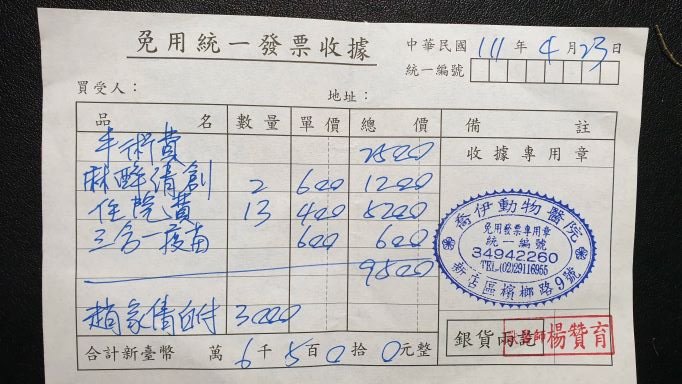 免用統一發票收據
中華民國 111 年 4 月 23 日
統一編號
買受人：
地址：
品名 數量 單價 總價 備註
手術費 2500
麻醉清創 2 600 1200
住院費 13 400 5200
三合一疫苗 600 600
9500
趙家倩自付 3000
收據專用章
喬伊動物醫院
免用發票專用章
統一編號
34942260
TEL:(02)29116955
新店區檳榔路9號
合計新臺幣 萬 6 千 5 百 0 拾 0 元整
銀貨兩訖
楊贊育